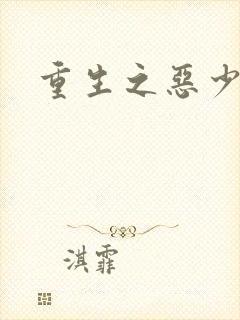 重生之惡少
淇霏